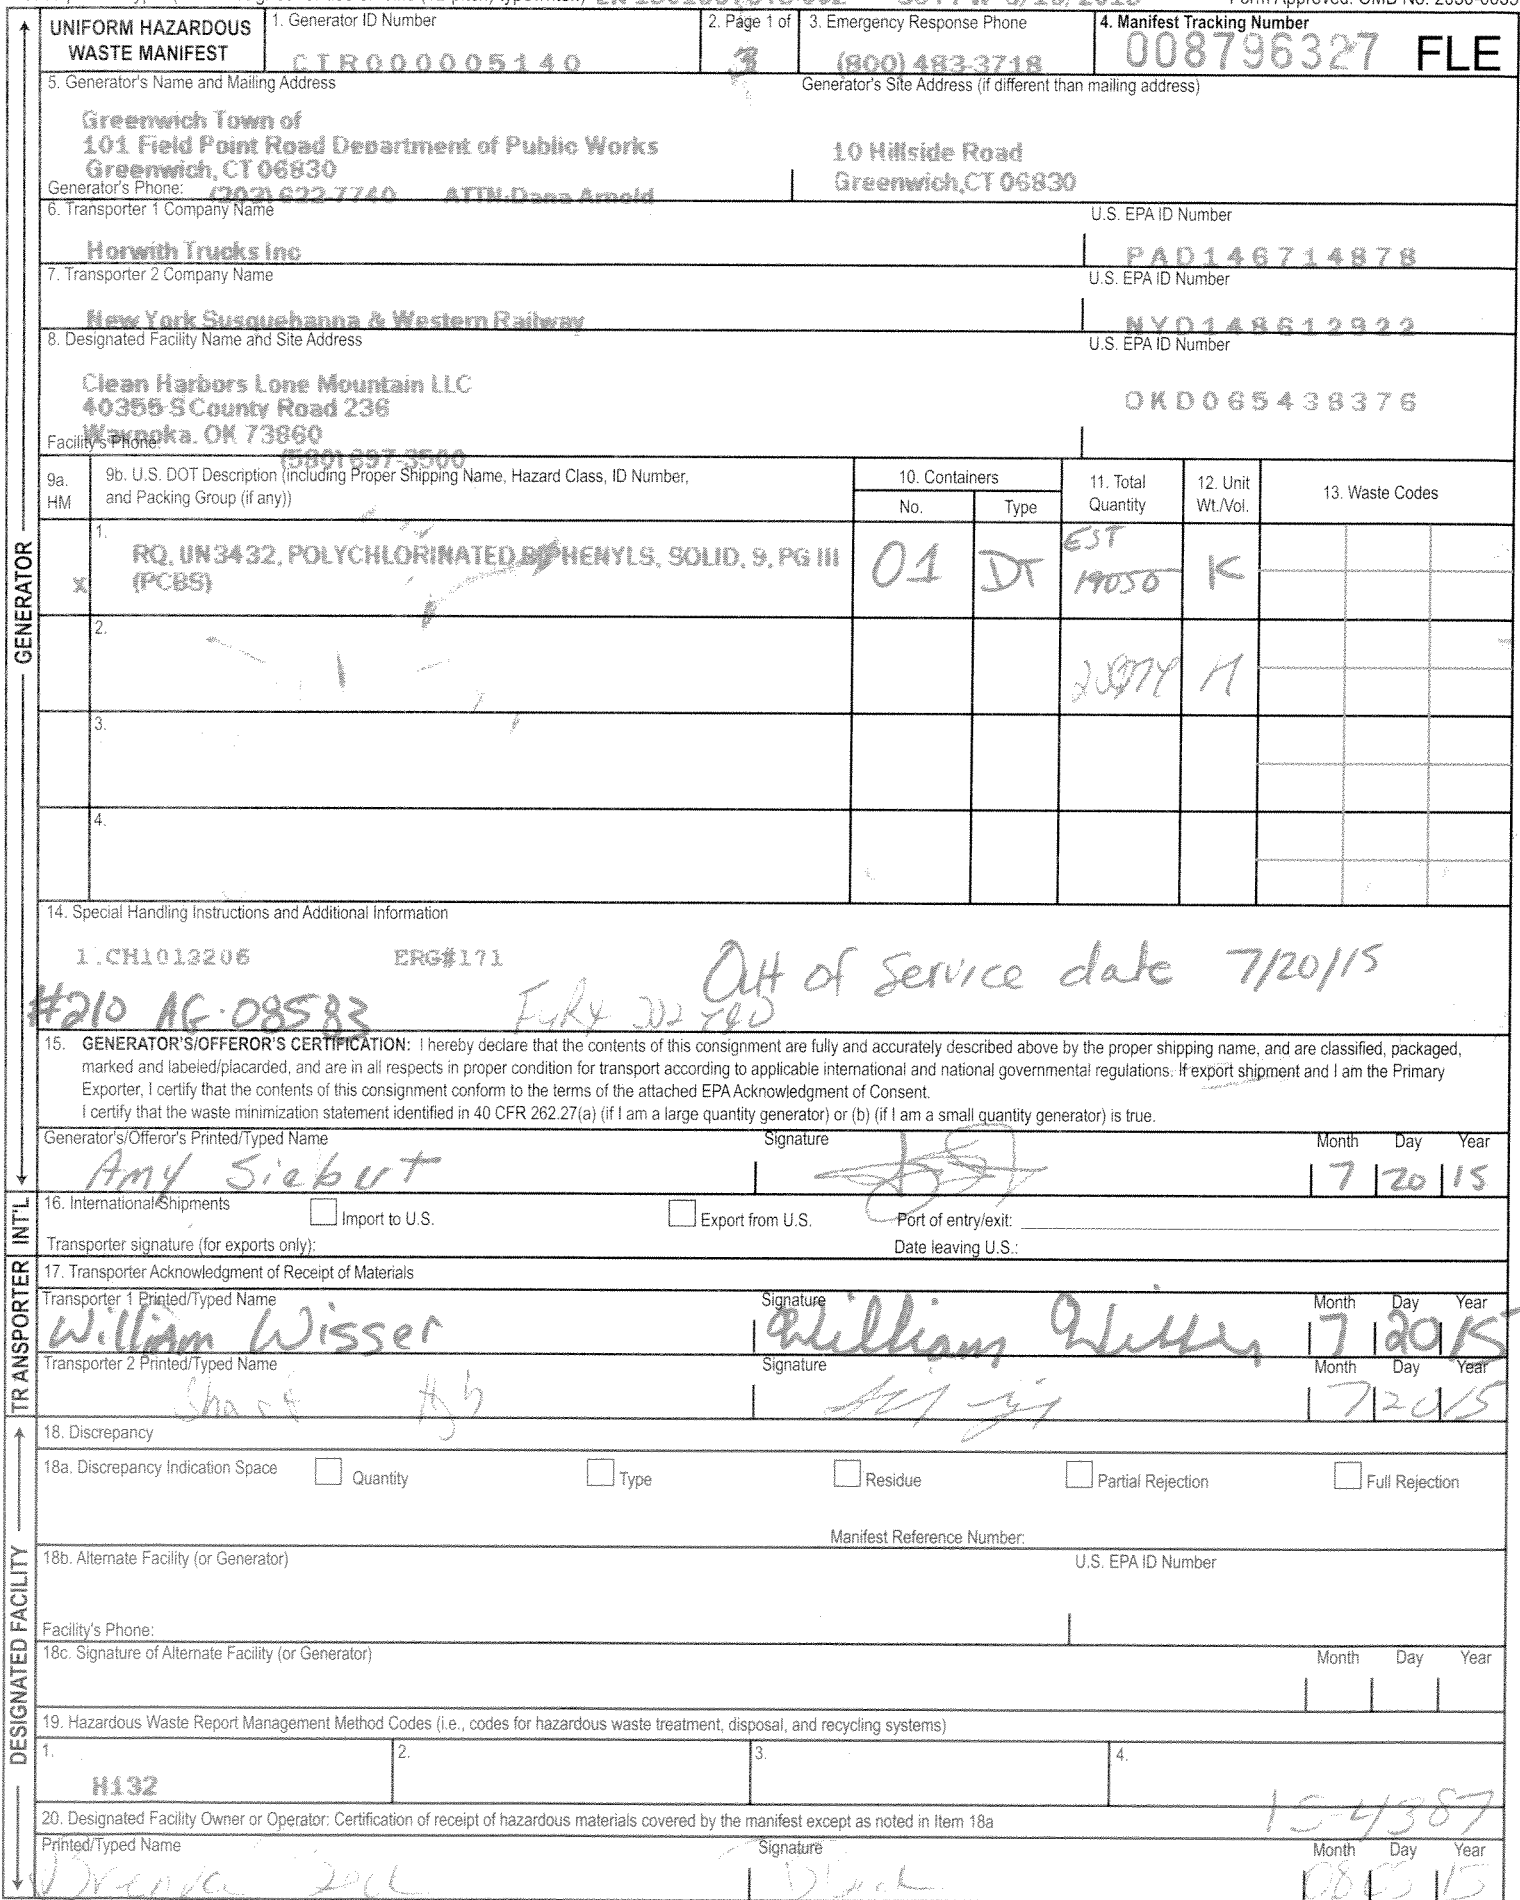 Form Approved. OMB No. 2050-0039
UNIFORM HAZARDOUS WASTE MANIFEST
1. Generator ID Number
CTR000005140
2. Page 1 of
3
3. Emergency Response Phone
(800) 483-3718
4. Manifest Tracking Number
008796327 FLE
5. Generator's Name and Mailing Address
Generator's Site Address (if different than mailing address)
Greenwich Town of
101 Field Point Road Department of Public Works
Greenwich, CT 06830
10 Hillside Road
Greenwich,CT 06830
Generator's Phone: (203) 622-7740 ATTN:Dana Arnold
6. Transporter 1 Company Name
U.S. EPA ID Number
Horwith Trucks Inc
PAD146714878
7. Transporter 2 Company Name
U.S. EPA ID Number
New York Susquehanna & Western Railway
NYD148612922
8. Designated Facility Name and Site Address
U.S. EPA ID Number
Clean Harbors Lone Mountain LLC
40355 S County Road 236
Waynoka, OK 73860
OKD065438376
Facility's Phone: (580) 697-3500
9a. HM
9b. U.S. DOT Description (including Proper Shipping Name, Hazard Class, ID Number, and Packing Group (if any))
10. Containers
No.
Type
11. Total Quantity
12. Unit Wt./Vol.
13. Waste Codes
1.
X
RQ, UN3432, POLYCHLORINATED BIPHENYLS, SOLID, 9, PG III
(PCBS)
01
DT
EST
19050
K
2.
3.
4.
14. Special Handling Instructions and Additional Information
1.CH1013206 ERG#171
Out of Service date 7/20/15
#210 AG-08583
15. GENERATOR'S/OFFEROR'S CERTIFICATION: I hereby declare that the contents of this consignment are fully and accurately described above by the proper shipping name, and are classified, packaged,
marked and labeled/placarded, and are in all respects in proper condition for transport according to applicable international and national governmental regulations. If export shipment and I am the Primary
Exporter, I certify that the contents of this consignment conform to the terms of the attached EPA Acknowledgment of Consent.
I certify that the waste minimization statement identified in 40 CFR 262.27(a) (if I am a large quantity generator) or (b) (if I am a small quantity generator) is true.
Generator's/Offeror's Printed/Typed Name
Signature
Month Day Year
Amy Siebert
7 20 15
16. International Shipments
Import to U.S.
Export from U.S.
Port of entry/exit:
Transporter signature (for exports only):
Date leaving U.S.:
17. Transporter Acknowledgment of Receipt of Materials
Transporter 1 Printed/Typed Name
Signature
Month Day Year
William Wisser
William Wisser
7 20 15
Transporter 2 Printed/Typed Name
Signature
Month Day Year
7 20 15
18. Discrepancy
18a. Discrepancy Indication Space
Quantity
Type
Residue
Partial Rejection
Full Rejection
Manifest Reference Number:
18b. Alternate Facility (or Generator)
U.S. EPA ID Number
Facility's Phone:
18c. Signature of Alternate Facility (or Generator)
Month Day Year
19. Hazardous Waste Report Management Method Codes (i.e., codes for hazardous waste treatment, disposal, and recycling systems)
1.
H132
2.
3.
4.
15-4387
20. Designated Facility Owner or Operator: Certification of receipt of hazardous materials covered by the manifest except as noted in Item 18a
Printed/Typed Name
Signature
Month Day Year
Brenda
GENERATOR
INT'L
TRANSPORTER
DESIGNATED FACILITY